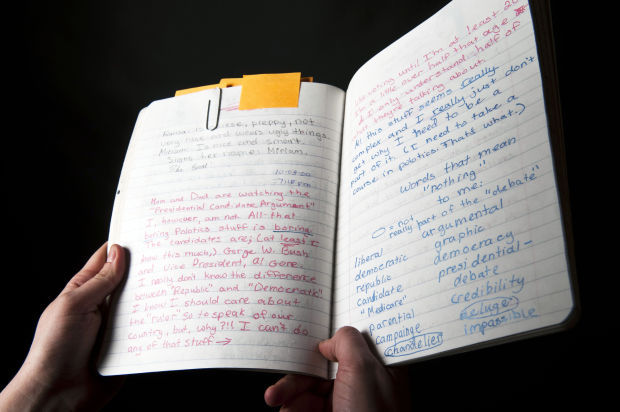 is preppy, not
very nice and wears ugly things.
Miriam: Is nice and smart.
Signs her name: Miriam.
So
7:14 pm
Mom and Dad are watching the
"Presidential Candidate Argument"
I, however, am not. All that
boring Polotics stuff is boring.
The candidates are; (at least I
know this much,) Gorge W. Bush
and Vice President, Al Gore.
I really don't know the difference
between "Republic" and "Democratic"
I know I should care about
the "ruler" so to speak of our
country, but, why?!! I can't do
any of that stuff →
be voting until I'm at least 20
I'm a little over half that age
& I only understand half of
what they're talking about.
All this stuff seems really
complex and I really just don't
get why I need to be a
part of it. (I need to take a
course in polotics. That's what.)
words that mean
"nothing"
to me:
O = not
really part of the "debate"
liberal
democratic
republic
candidate
"Medicare"
parential
campainge
chandelier
argumental
graphic
democracy
presidential-
debate
credibility
deluge
impassible